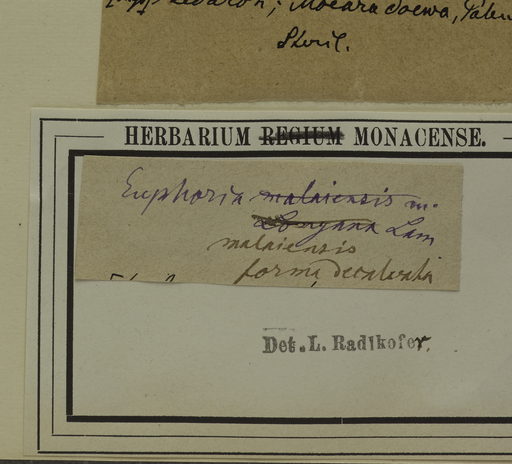 Moeara doewa,
Steril.
HERBARIUM REGIUM MONACENSE.
Euphoria malaiensis m.
Longana Lam
malaiensis
forma decalvata
Det. L. Radlkofer.